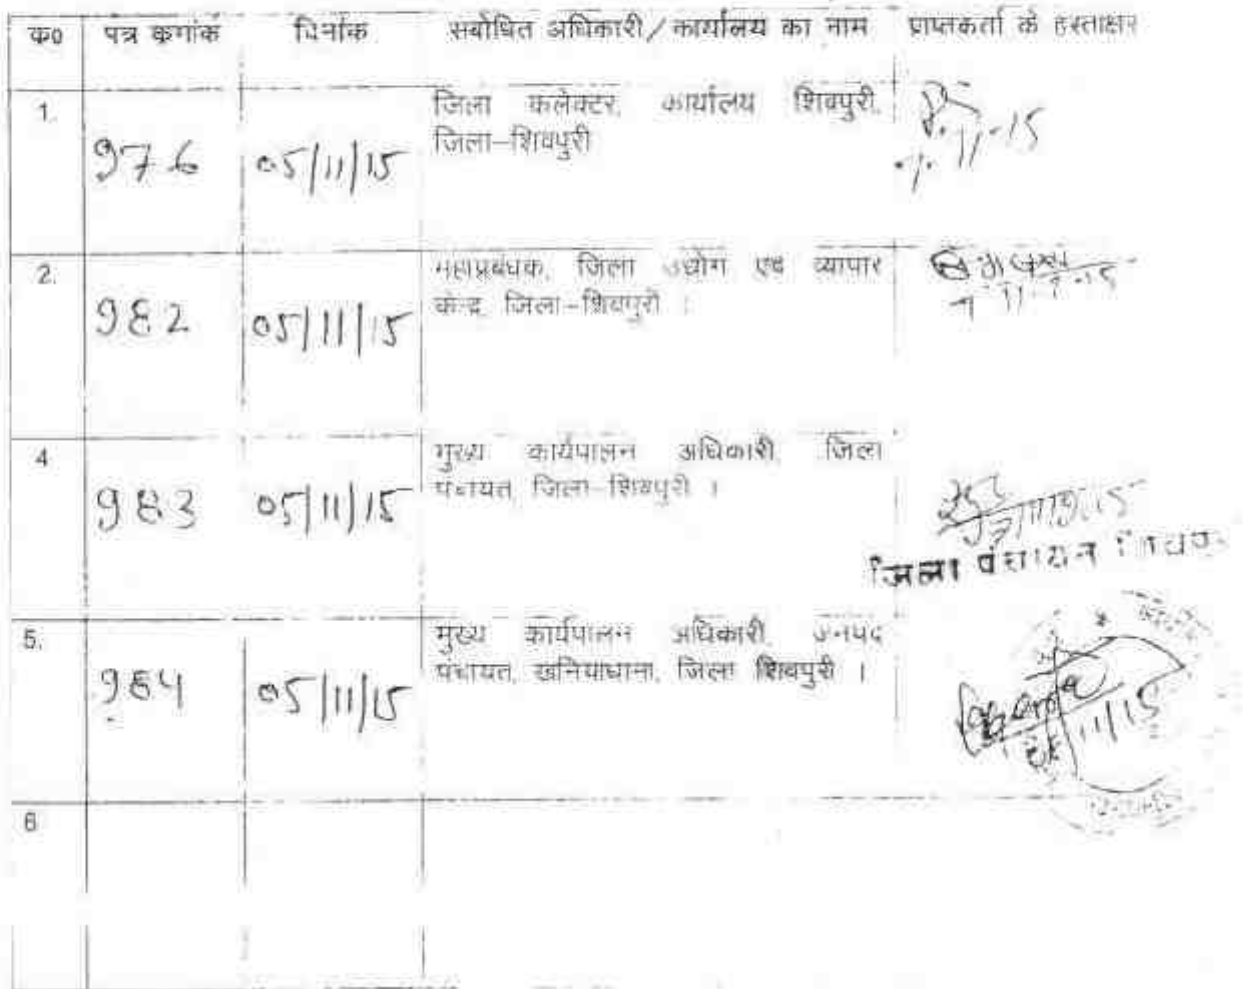 क0 पत्र क्रमांक दिनांक संबोधित अधिकारी/कार्यालय का नाम प्राप्तकर्ता के हस्ताक्षर
1. 976 05/11/15 जिला कलेक्टर, कार्यालय शिवपुरी,
जिला-शिवपुरी
2. 982 05/11/15 महाप्रबंधक, जिला उद्योग एवं व्यापार
केन्द्र, जिला-शिवपुरी ।
4 983 05/11/15 मुख्य कार्यपालन अधिकारी, जिला
पंचायत, जिला-शिवपुरी ।
जिला पंचायत
5. 984 05/11/15 मुख्य कार्यपालन अधिकारी, जनपद
पंचायत, खनियाधाना, जिला शिवपुरी ।
11/15
6